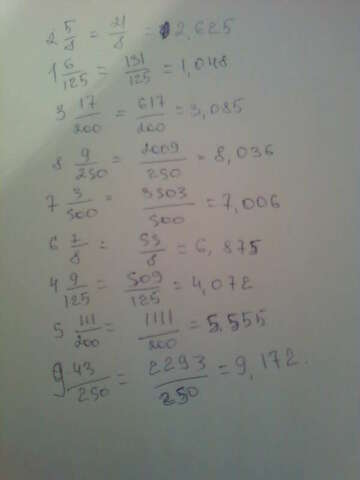 2 5/8 = 21/8 = 2,625
1 6/125 = 131/125 = 1,048
3 17/200 = 617/200 = 3,085
8 9/250 = 2009/250 = 8,036
7 3/500 = 3503/500 = 7,006
6 7/8 = 55/8 = 6,875
4 9/125 = 509/125 = 4,072
5 111/200 = 1111/200 = 5,555
9 43/250 = 2293/250 = 9,172.